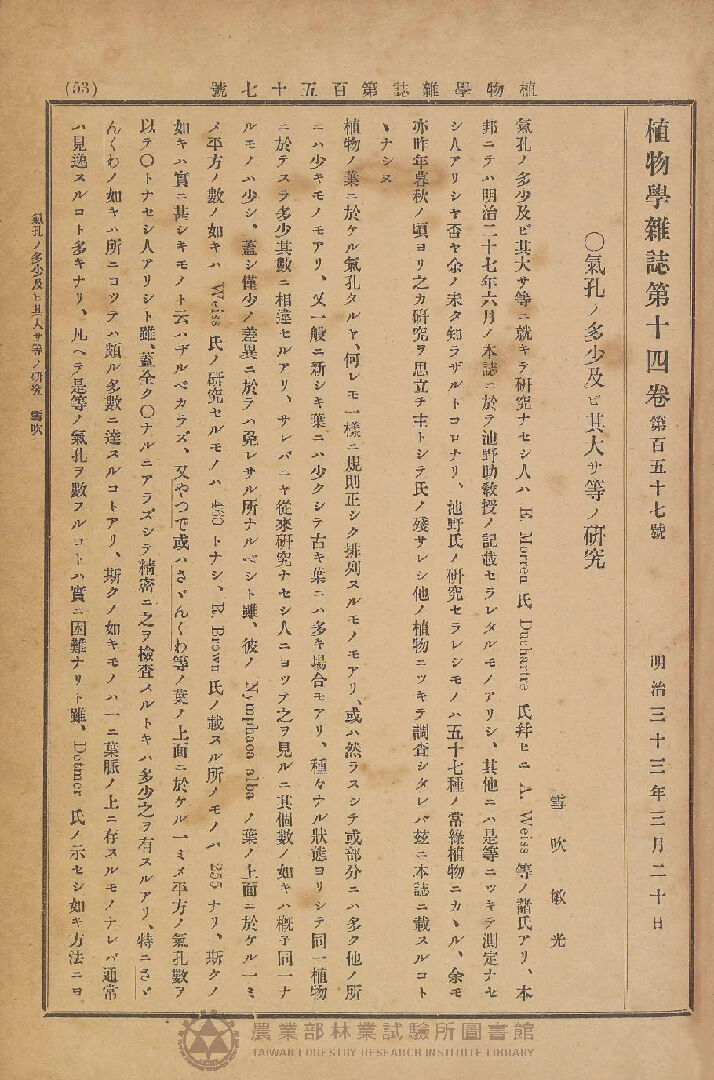 (53)
號七十五百第誌雜學物植
植物學雜誌第十四卷 第百五十七號 明治三十三年三月二十日
〇氣孔ノ多少及ビ其大サ等ノ研究
雪吹敏光
氣孔ノ多少及ビ其大サ等ニ就キテ研究ナセシ人ハ E. Morren 氏 Duchartre 氏幷ヒニ A. Weiss 等ノ諸氏アリ、本
邦ニテハ明治二十七年六月ノ本誌ニ於テ池野助敎授ノ記載セラレタルモノアリシ、其他ニハ是等ニツキテ測定ナセ
シ人アリシヤ否ヤ余ノ未タ知ラザルトコロナリ、池野氏ノ硏究セラレシモノハ五十七種ノ常綠植物ニカヽル、余モ
亦昨年暮秋ノ頃ヨリ之カ硏究ヲ思立チ主トシテ氏ノ殘サレシ他ノ植物ニツキテ調査シタレバ玆ニ本誌ニ載スルコト
ヽナシヌ
植物ノ葉ニ於ケル氣孔タルヤ、何レモ一樣ニ規則正シク排列スルモノモアリ、或ハ然ラスシテ或部分ニハ多ク他ノ所
ニハ少キモノモアリ、又一般ニ新シキ葉ニハ少クシテ古キ葉ニハ多キ場合モアリ、種々ナル狀態ヨリシテ同一植物
ニ於テスラ多少其數ニ相違セルアリ、サレバニヤ從來硏究ナセシ人ニヨツテ之ヲ見ルニ其個數ノ如キハ槪子同一ナ
ルモノハ少シ、蓋シ僅少ノ差異ニ於テハ免レサル所ナルベシト雖、彼ノ Nymphaea alba ノ葉ノ上面ニ於ケル一ミ
メ平方ノ數ノ如キハ Weiss 氏ノ研究セルモノハ 460 トナシ、R. Brown 氏ノ載スル所ノモノハ 255 ナリ、斯クノ
如キハ實ニ甚シキモノト云ハザルベカラズ、又やつで或ハさゞんくわ等ノ葉ノ上面ニ於ケル一ミメ平方ノ氣孔數ヲ
以テ〇トナセシ人アリシト雖、蓋全ク〇ナルニアラズシテ精密ニ之ヲ檢査スルトキハ多少之ヲ有スルアリ、特ニさゞ
んくわノ如キハ所ニコツテハ頗ル多數ニ達スルコトアリ、斯クノ如キモノハ一ニ葉脈ノ上ニ存スルモノナレバ通常
ハ見逸スルコト多キナリ、凡ヘテ是等ノ氣孔ヲ數フルコトハ實ニ困難ナリト雖、Detmer 氏ノ示セシ如キ方法ニヨ
氣孔ノ多少及ヒ其大サ等ノ硏究 雪吹
農業部林業試驗所圖書館
TAIWAN FORESTRY RESEARCH INSTITUTE LIBRARY